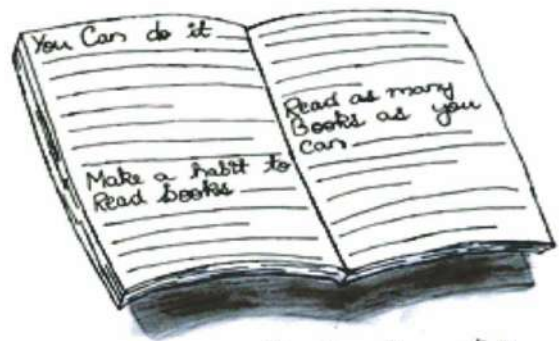 You Can do it
Make a habit to
Read books
Read as many
Books as you
can